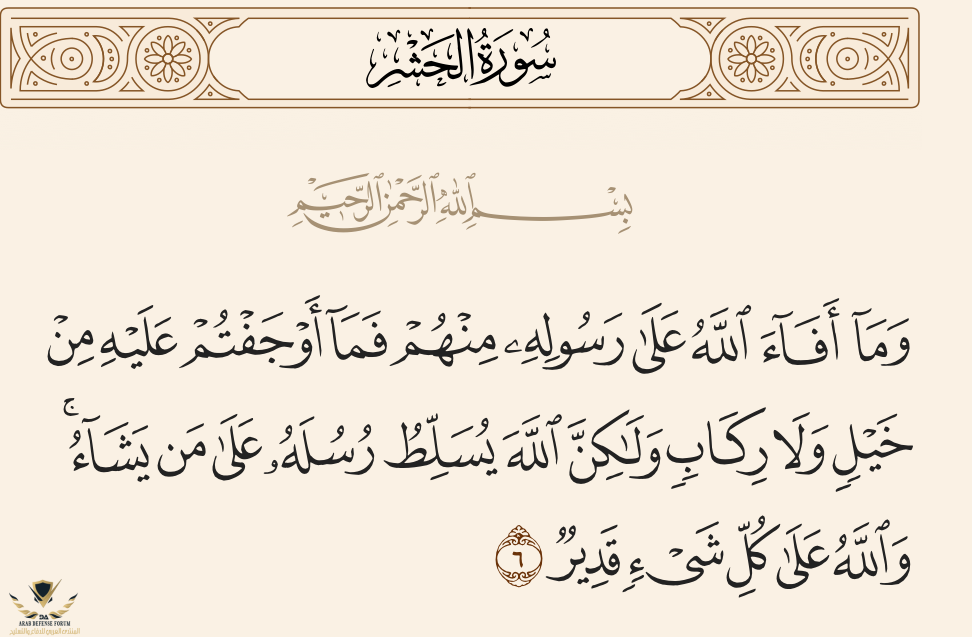 سُورَةُ الحَشْرِ
بِسْمِ اللَّهِ الرَّحْمَٰنِ الرَّحِيمِ
وَمَآ أَفَآءَ ٱللَّهُ عَلَىٰ رَسُولِهِۦ مِنْهُمْ فَمَآ أَوْجَفْتُمْ عَلَيْهِ مِنْ
خَيْلٍ وَلَا رِكَابٍ وَلَٰكِنَّ ٱللَّهَ يُسَلِّطُ رُسُلَهُۥ عَلَىٰ مَن يَشَآءُ ۚ
وَٱللَّهُ عَلَىٰ كُلِّ شَىْءٍ قَدِيرٌ ٦
ARAB DEFENSE FORUM
المنتدى العربي للدفاع والتسليح